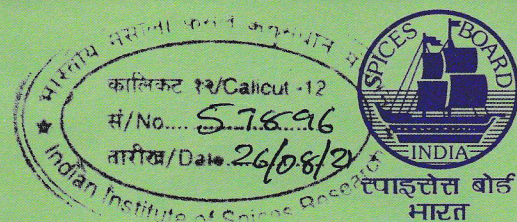 भारतीय मसाला फसल अनुसंधान
कालिकट १२/Calicut -12
सं/No.... 57896
तारीख/Date 26/08/21
Indian Institute of Spices Research
SPICES BOARD
INDIA
स्पाइसेस बोर्ड
भारत